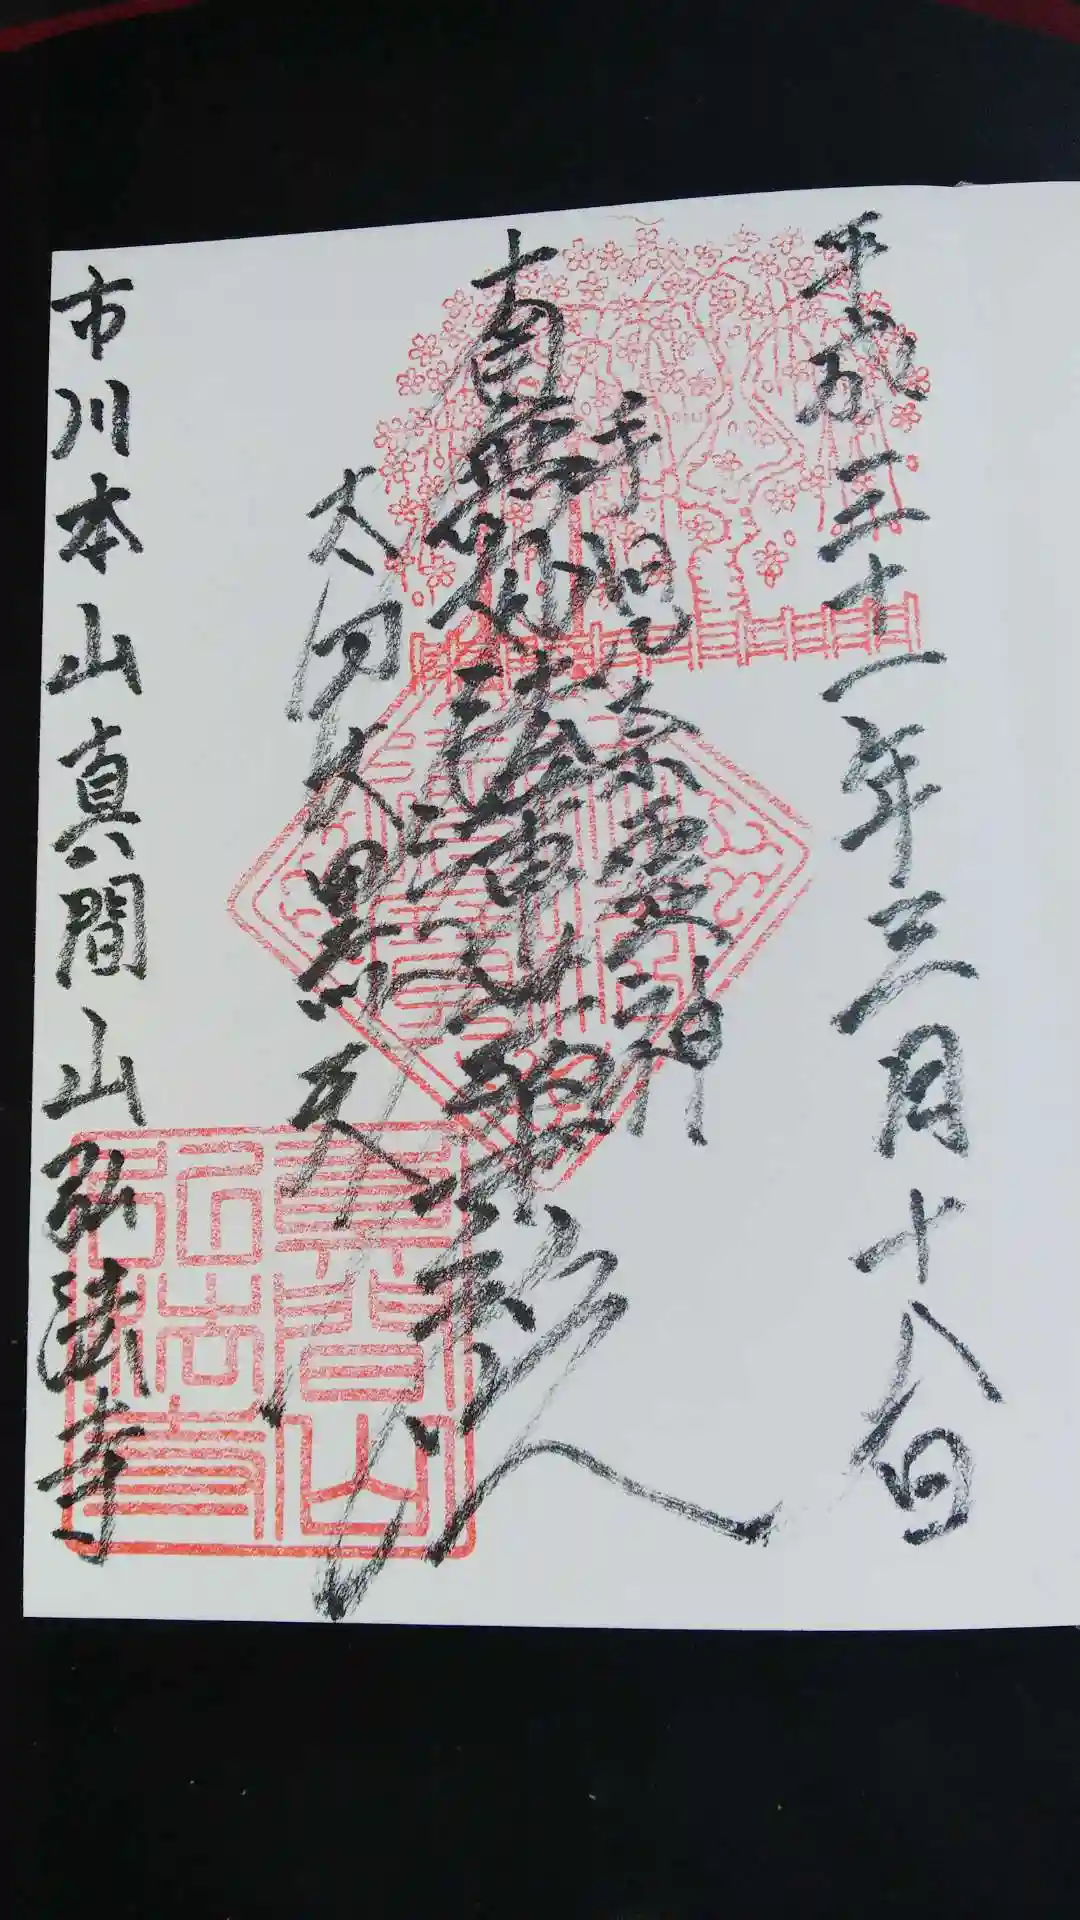 平成三十一年三月十八日
手児奈霊神
南無妙法蓮華経
太刀大黒天
市川本山真間山弘法寺